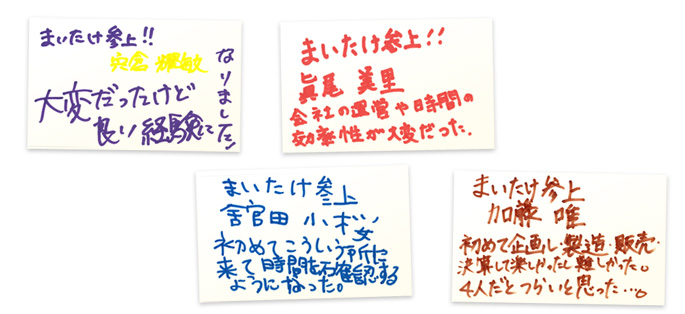 まいたけ参上!!
宍倉 耀敏
大変だったけど
良い経験に
なりました!
まいたけ参上!!
眞尾 美里
会社の運営や時間の
効率性が大変だった.
まいたけ参上
舎官田 小桜
初めてこういう所に
来て時間を確認する
ようになった。
まいたけ参上
加藤 唯
初めて企画し・製造・販売・
決算して楽しかったし難しかった。
4人だとつらいと思った…。